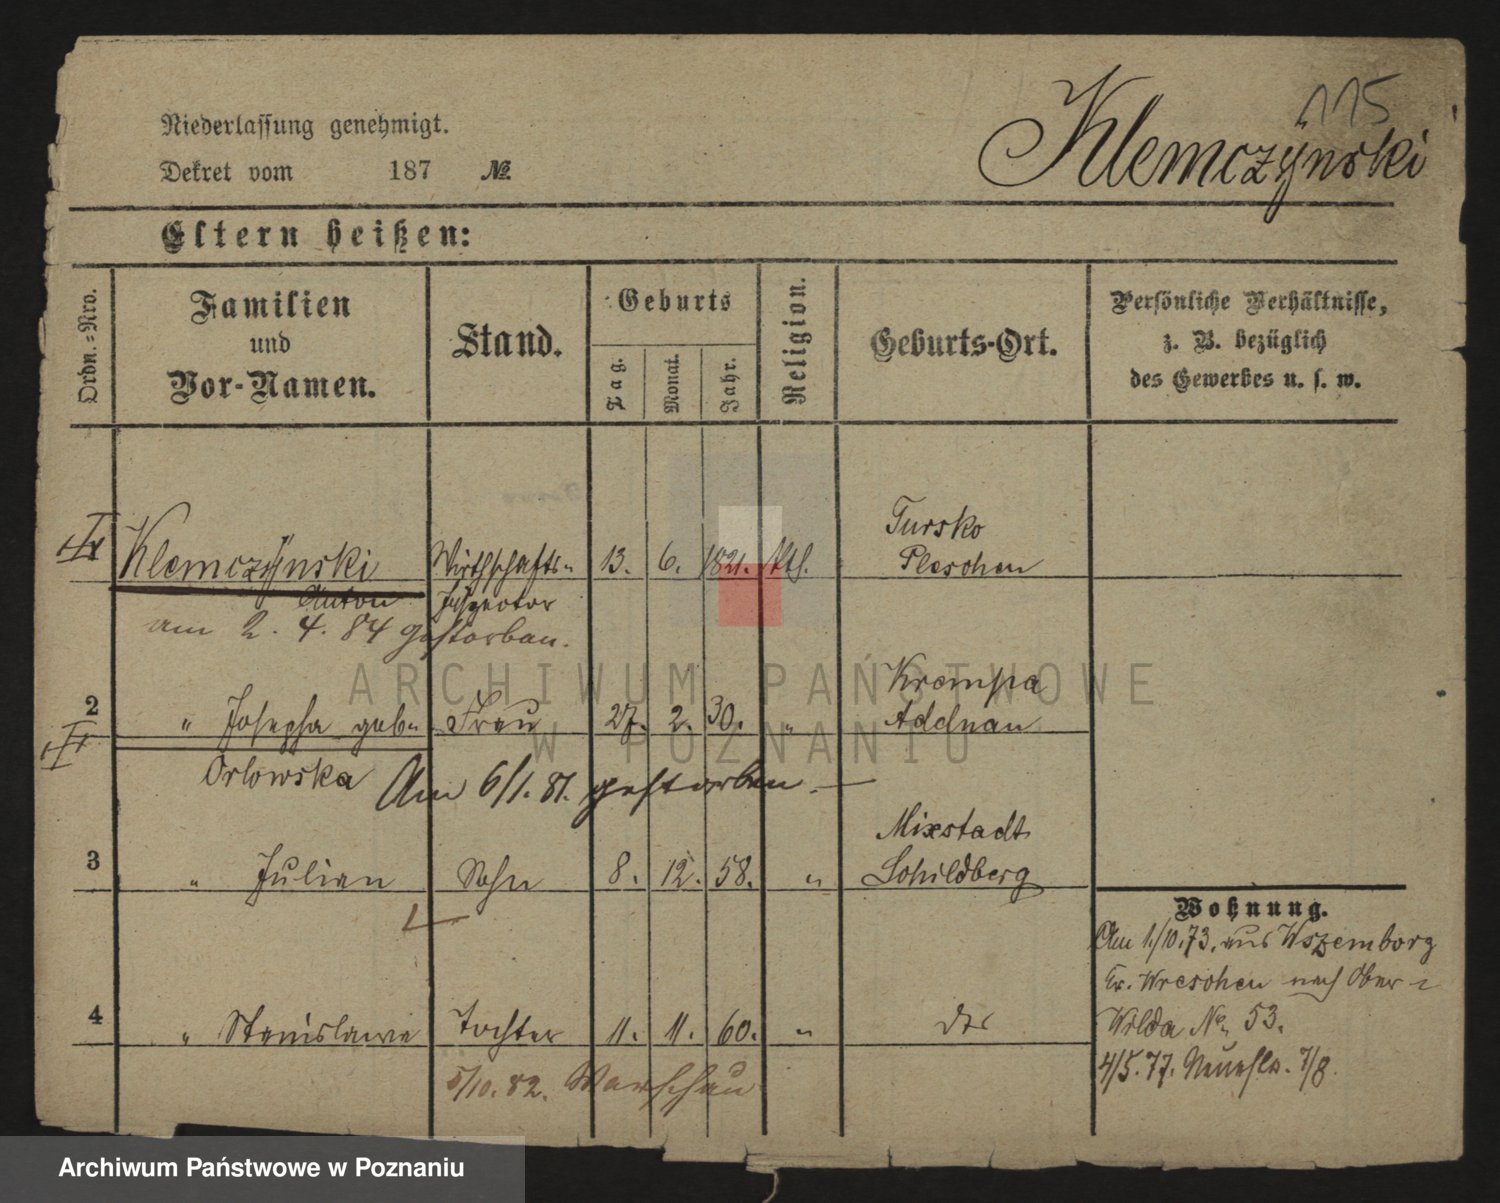 115
Niederlassung genehmigt.
Klemczÿnski
Dekret vom 187 №
Eltern heißen:
Ordn.=Nro.
Familien
und
Vor-Namen.
Stand.
Geburts
Tag.
Monat.
Jahr.
Religion.
Geburts-Ort.
Persönliche Verhältnisse,
z. B. bezüglich
des Gewerbes u. s. w.
Tursko
1 Klemczÿnski Wirthschafts- 13. 6. 1821. kth. Pleschen
Anton Inspector
am 2. 4. 84 gestorben.
Krempa
2 " Josepha geb. Frau 27. 2. 30. " Adelnau
Orlowska Am 6/1. 81. gestorben.
Mixstadt
3 " Julian Sohn 8. 12. 58. " Schildberg
4 " Stanislawa Tochter 11. 11. 60. " dto
5/10. 82. Warschau
Wohnung.
Am 1./10.73. aus Wszemborz
Kr. Wreschen nach Ober-
Wilda No 53.
4/5. 77. 7/8.
ARCHIWUM PAŃSTWOWE
W POZNANIU
Archiwum Państwowe w Poznaniu